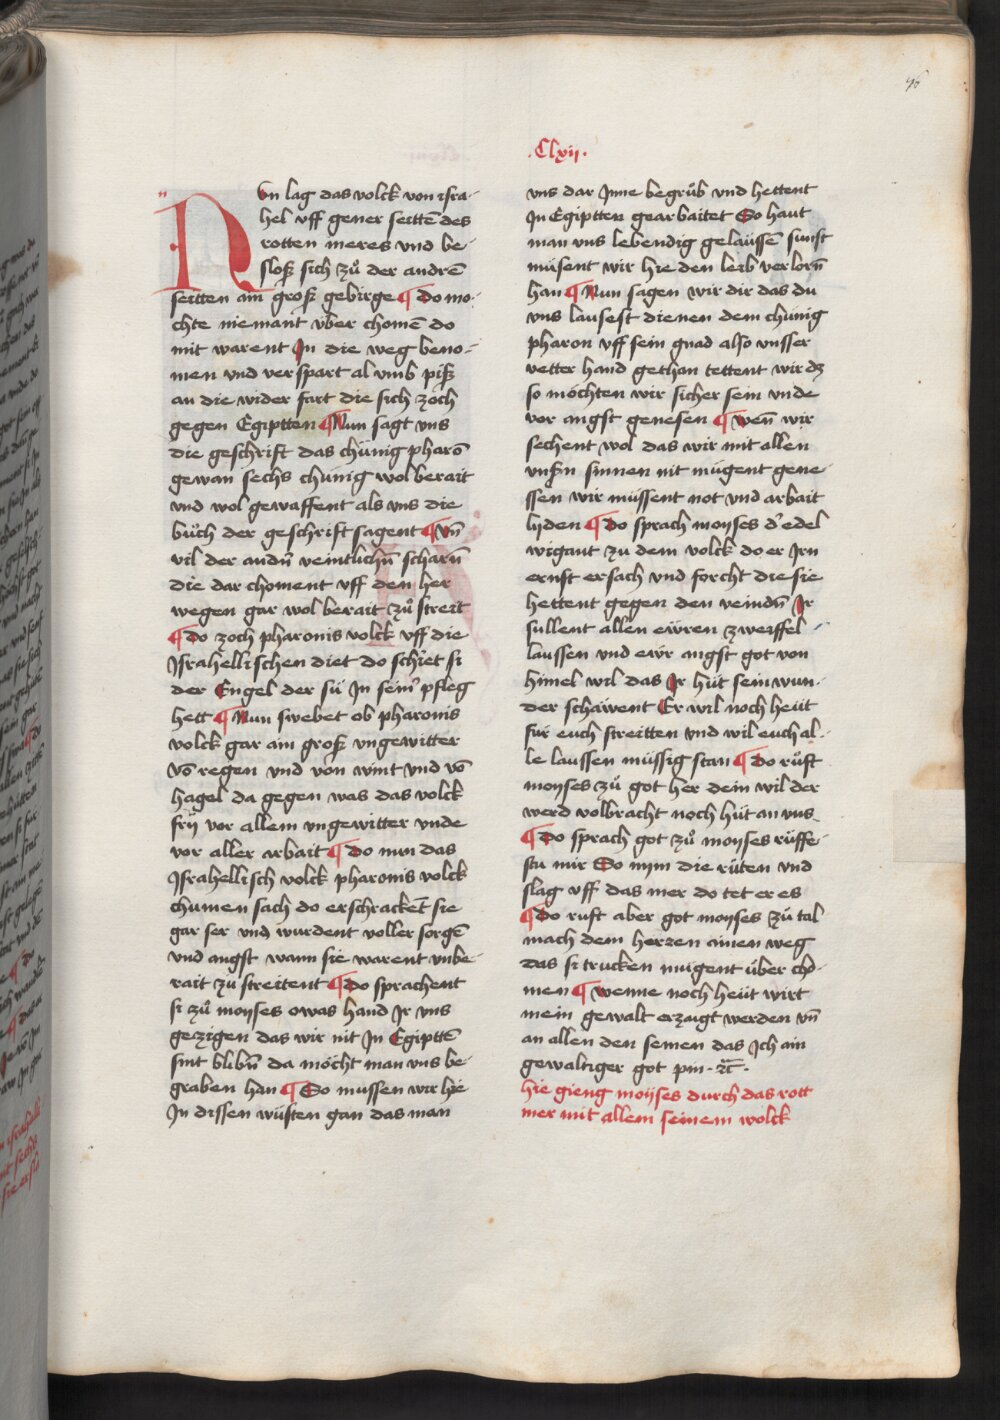 96
.Clxij.
NUn lag das volck von isra-
hel vff gener seittē des
rotten meres vnd be-
sloß sich zů der andrē
seitten ain groß gebirge ¶ Do mo-
chte niemant vber chomē do
mit warent Jn die weg beno-
men vnd verspart al vmb piß
an die wider fart die sich zoch
gegen Egiptten ¶ Nun sagt vns
die geschrift das chünig pharō
gewan sechs chünig wol berait
vnd wol gewaffent als vns die
büch der geschrift sagent ¶ Vn̄
vil der andn̄ veintlichn̄ scharn̄
die dar choment vff den her
wegen gar wol berait zů streit
¶ Do zoch pharonis volck vff die
Jsrahellischen diet do schiet si
der Engel der sü Jn seinr pfleg
hett ¶ Nun swebet ob pharonis
volck gar ain groß vngewitter
vō regen vnd von wint vnd vō
hagel da gegen was das volck
frÿ vor allem vngewitter vnde
vor aller arbait ¶ Do nun das
Jsrahellisch volck pharonis volck
chumen sach do erschracket sie
gar ser vnd wurdent voller sorgē
vnd angst wann sie warent vnbe-
rait zů streitent ¶ Do sprachent
si zů moyses owas hand Jr vns
gezigen das wir nit Jn Egiptē
sint blibn̄ da möcht man vns be-
graben han ¶ So mussen wir hie
Jn dissen wüsten gan das man
vns dar Jnne begrůb vnd hettent
Jn Egiptten gearbaitet So haut
man vns lebendig gelaüssē sunst
müsent wir hie den leib verlorn̄
han ¶ Nun sagen wir dir das du
vns lausest dienen dem chünig
pharon vff sein gnad also vnsser
vetter hand gethan tettent wir dz
so möchten wir sicher sein vnde
vor angst genesen ¶ Wen̄ wir
sechent wol das wir mit allen
vnsn̄ sinnen nit mügent gene-
ssen wir müssent not vnd arbait
lyden ¶ Do sprach moyses d'edel
wigant zu dem volck do er Jrn
ernst ersach vnd forcht die sie
hettent gegen den veindn̄ Jr
sullent allen ewren zweiffel
laussen vnd ewr angst got von
himel wil das Jr hüt sein wun-
der schawent Er wil noch heüt
für euch streitten vnd wil euch al-
le laussen müssig stan ¶ Do růft
moyses zů got her dein wil der
werd volbracht noch hüt an vns
¶ Do sprach got zů moyses rüffe-
stu mir So nym die rüten vnd
slag vff das mer do tet er es
¶ Do ruft aber got moyses zů tal
mach dem herzen ainen weg
das si trucken mugent über cho-
men ¶ Wenne noch heüt wirt
mein gewalt erzaigt werden vn̄
an allen den seinen das Jch ain
gewaltiger got pin · ꝛc̄ ·
hie gieng moÿses durch das rott
mer mit allem seinem wolck